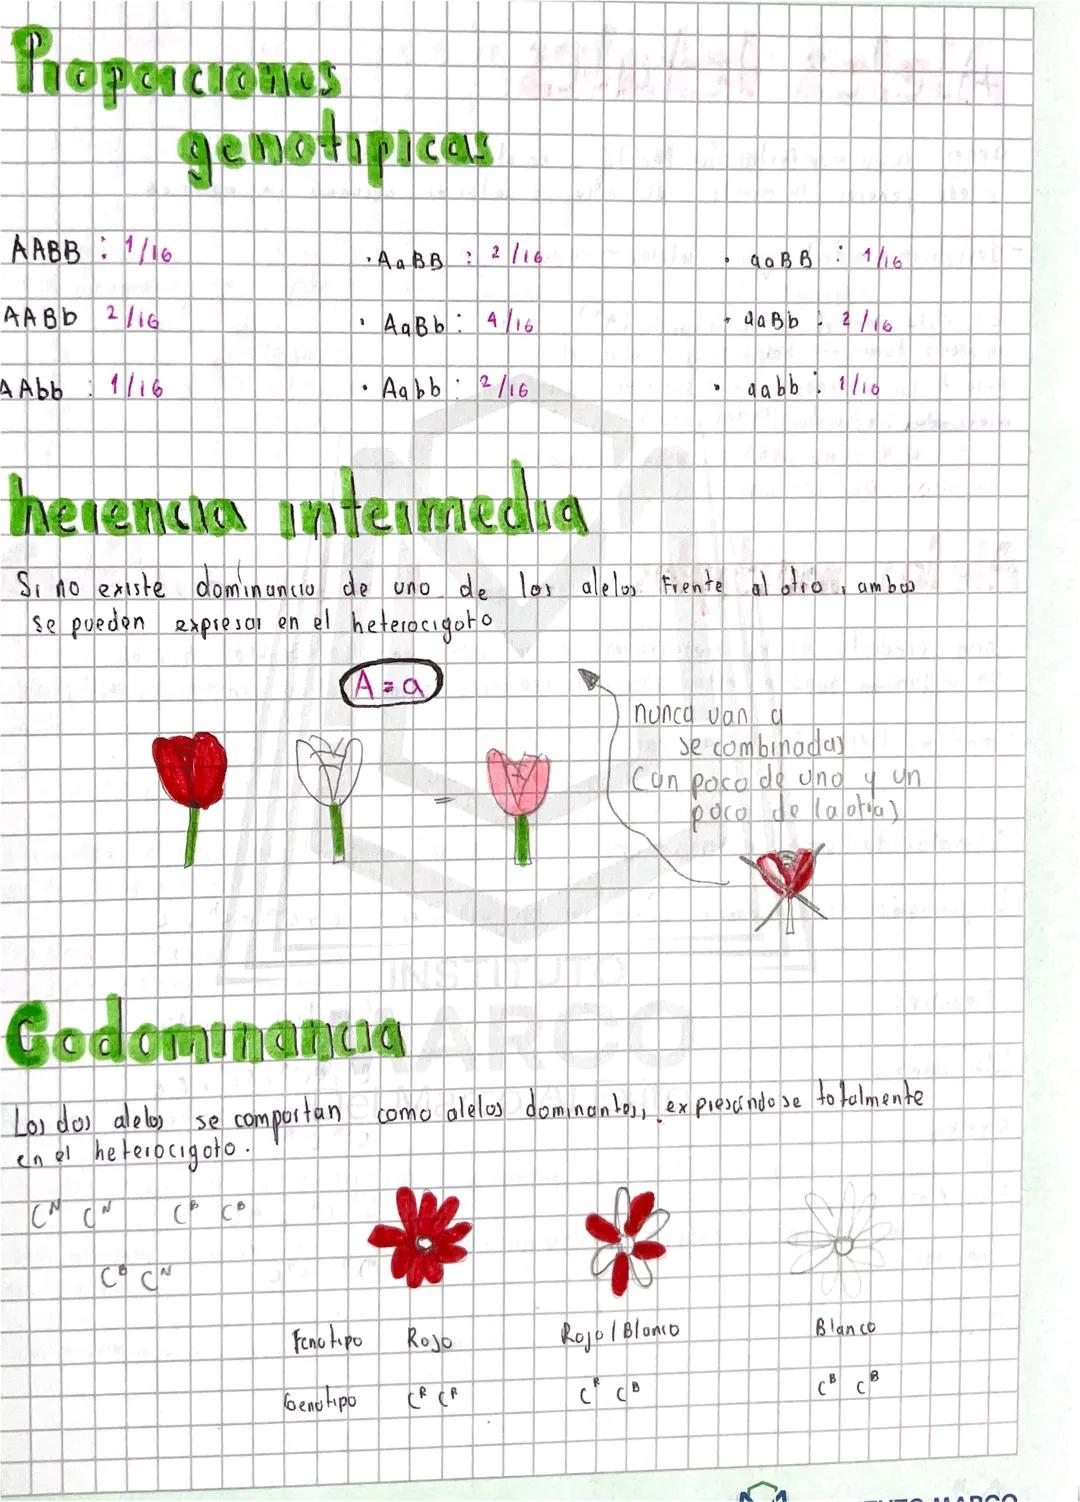 Proporciones
genotipicas
AABB : 1/16
· AaBB : 2/16
· aaBB : 1/16
AABb 2/16
· AaBb : 4/16
· aaBb : 2/16
AAbb : 1/16
· Aabb : 2/16
· aabb : 1/16
herencia intermedia
Si no existe dominancia de uno de los alelos Frente al otro, ambos
se pueden expresar en el heterocigoto
A = a
nunca van a
se combinadas
(un poco de uno y un
poco de la otra)
=
Codominancia
Los dos alelos se comportan como alelos dominantes, expresándose totalmente
en el heterocigoto.
C^N C^N C^B C^B
C^B C^N
Fenotipo Rojo Rojo / Blanco Blanco
Genotipo C^R C^R C^R C^B C^B C^B
INSTITUTO
MARCO